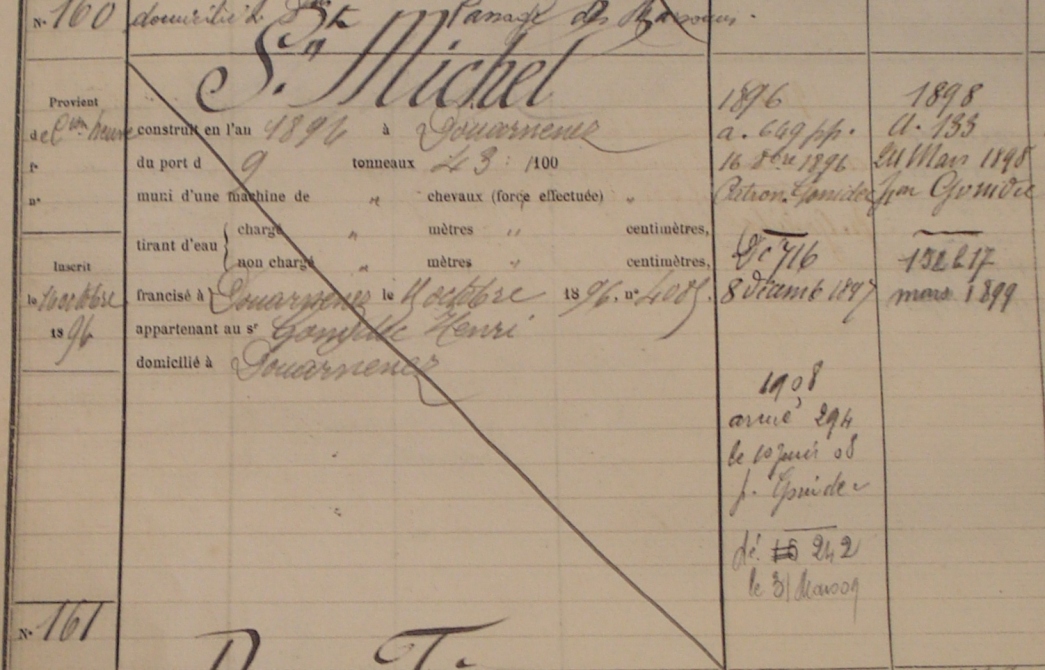 N° 160 domicilié à Passage des
St Michel
Provient
de l'Un. heure construit en l'an 1896 à Douarnenez
f° du port d 9 tonneaux 43 /100
n° muni d'une machine de " chevaux (force effectuée) "
tirant d'eau { chargé " mètres " centimètres,
non chargé " mètres " centimètres,
Inscrit
le 16 octobre 1896
francisé à Douarnenez le octobre 1896. n° 4085.
appartenant au sr Henri
domicilié à Douarnenez
1896
a. 649 pp.
16 8bre 1896
Patron Gonidec
Dc 716
8 décemb 1897
1908
armé 294
le 10 08
p. Gonidec
dé. 242
le 31 Mars 09
1898
A. 133
Mars 1898
par Gonidec
132 617
mars 1899
N° 161